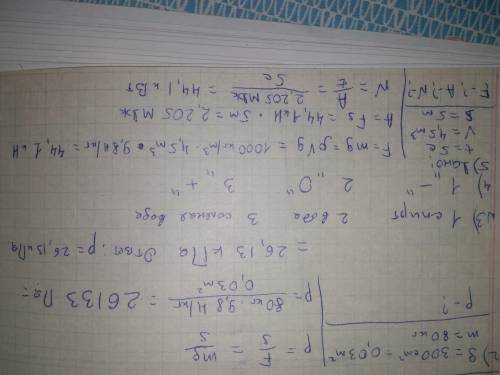 2) S = 300 см² = 0,03 м²
m = 80 кг
P - ?
P = F/S = mg/S
P = 80 кг · 9,8 Н/кг / 0,03 м² = 26133 Па =
= 26,13 кПа Ответ: p = 26,13 кПа
3) 1 спирт 2 вода 3 соленая вода
4) 1 „–" 2 „0" 3 „+"
5) Дано:
t = 5 c
V = 4,5 м³
S = 5 м
F-? A-? N-?
F = mg = ρVg = 1000 кг/м³ · 4,5 м³ · 9,8 Н/кг = 44,1 кН
A = Fs = 44,1 кН · 5 м = 2,205 МДж
N = A/t = 2,205 МДж / 5 c = 44,1 кВт